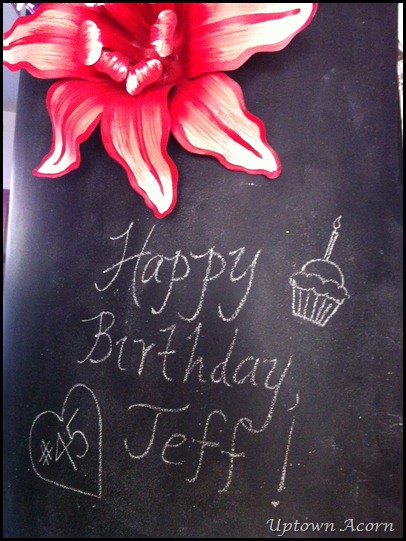 Happy
Birthday,
Jeff!
#45
Uptown Acorn